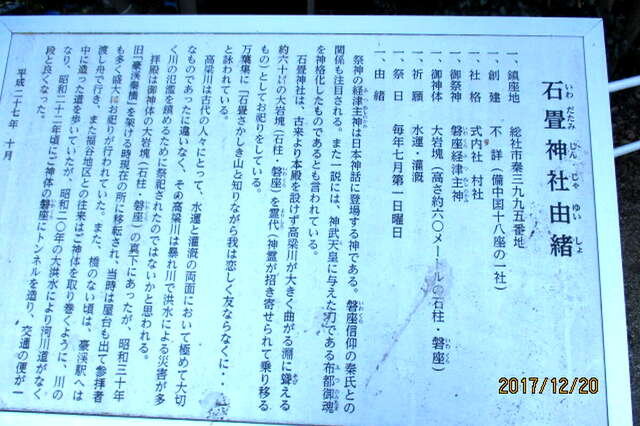 石畳神社由緒
いわ だたみ じん じゃ ゆい しょ
一、鎮座地 総社市秦三九九五番地
一、創建 不詳(備中国十八座の一社)
一、社格 式内社 村社
一、御祭神 磐座経津主神
一、御神体 大岩塊(高さ約六〇メートルの石柱・磐座)
一、祈願 水運・灌漑
一、祭日 毎年七月第一日曜日
一、由緒
祭神の経津主神は日本神話に登場する神である。磐座信仰の秦氏との
関係も注目される。また一説には、神武天皇に与えた刀である布都御魂
を神格化したものであるとも言われている。
石畳神社は、古来より本殿を設けず高梁川が大きく曲がる淵に聳える
約六十㍍の大岩塊(石柱・磐座)を霊代(神霊が招き寄せられて乗り移る
もの)としてお祀りをしている。
万葉集に「石畳さかしき山と知りながら我は恋しく友ならなくに・・
と詠われている。
高梁川は古代の人々にとって、水運と灌漑の両面において極めて大切
なものであったに違いなく、その高梁川は暴れ川で洪水による災害が多
く川の氾濫を鎮めるために祭祀されたのではないかと思われる。
拝殿は御神体の大岩塊(石柱・磐座)の真下にあったが、昭和三十年
旧「豪渓秦橋」を架ける時現在の所に移転され、当時は屋台も出て参拝者
も多く盛大にお祀りが行われていた。また、橋のない頃は、豪渓駅へは
渡し舟で行き、また福谷地区との往来はご神体を取り巻くように、川の
中に造った道を歩いていたが、昭和二〇年の大洪水により河川道がなく
なり、昭和二十二年頃にご神体の磐座にトンネルを造り、交通の便が一
段と良くなった。
平成二十七年 十月
2017/12/20